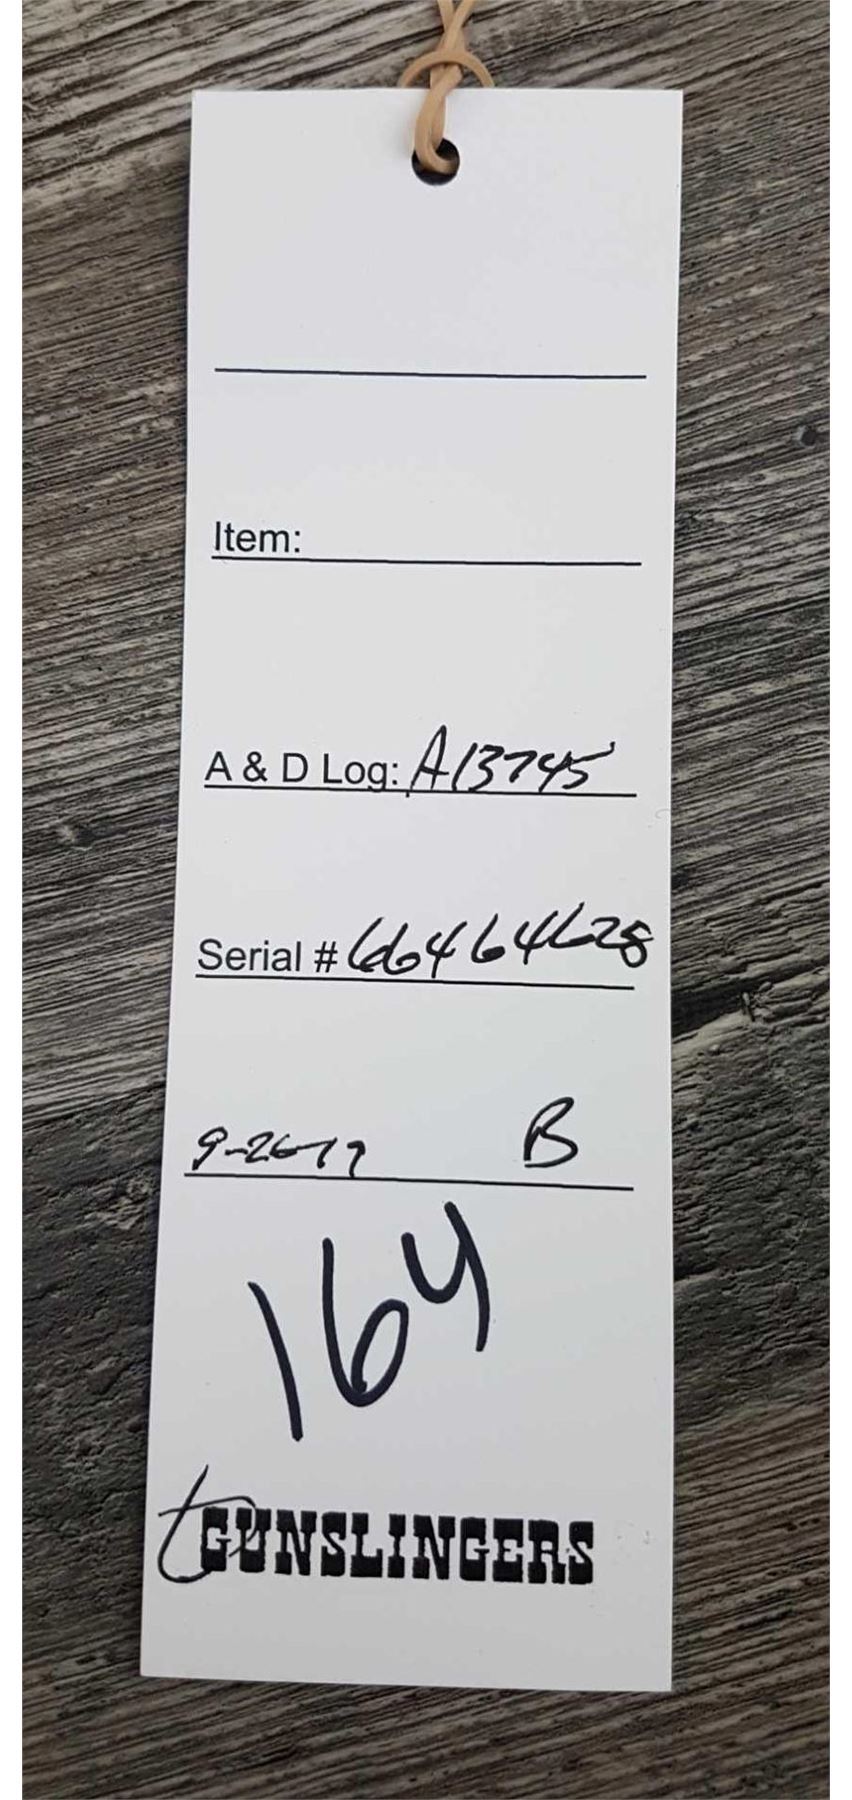 Item:
A & D Log: A13745
Serial # 66464628
9-26-19 B
164
GUNSLINGERS